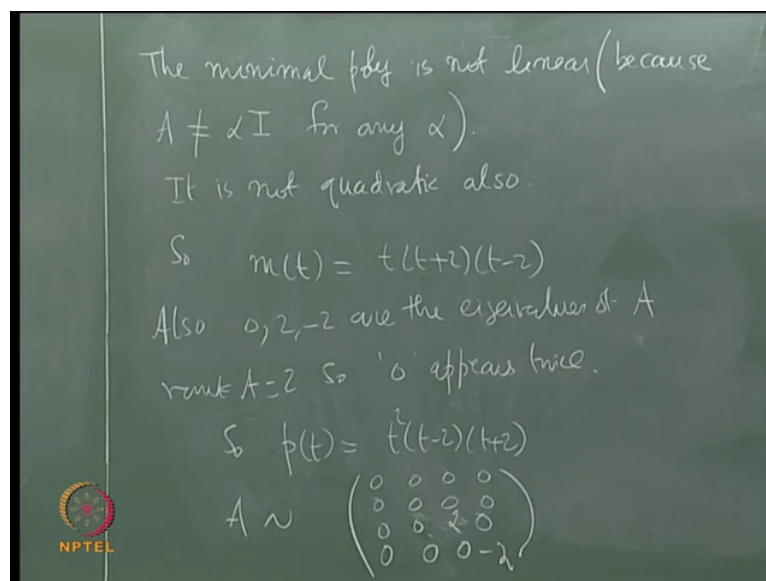 The minimal poly is not linear (because
A ≠ αI for any α).
It is not quadratic also.
So m(t) = t(t+2)(t-2)
Also 0, 2, -2 are the eigenvalues of A
rank A = 2 So '0' appears twice.
So p(t) = t²(t-2)(t+2)
A ~ ( 0 0 0 0
0 0 0 0
0 0 2 0
0 0 0 -2 )
NPTEL